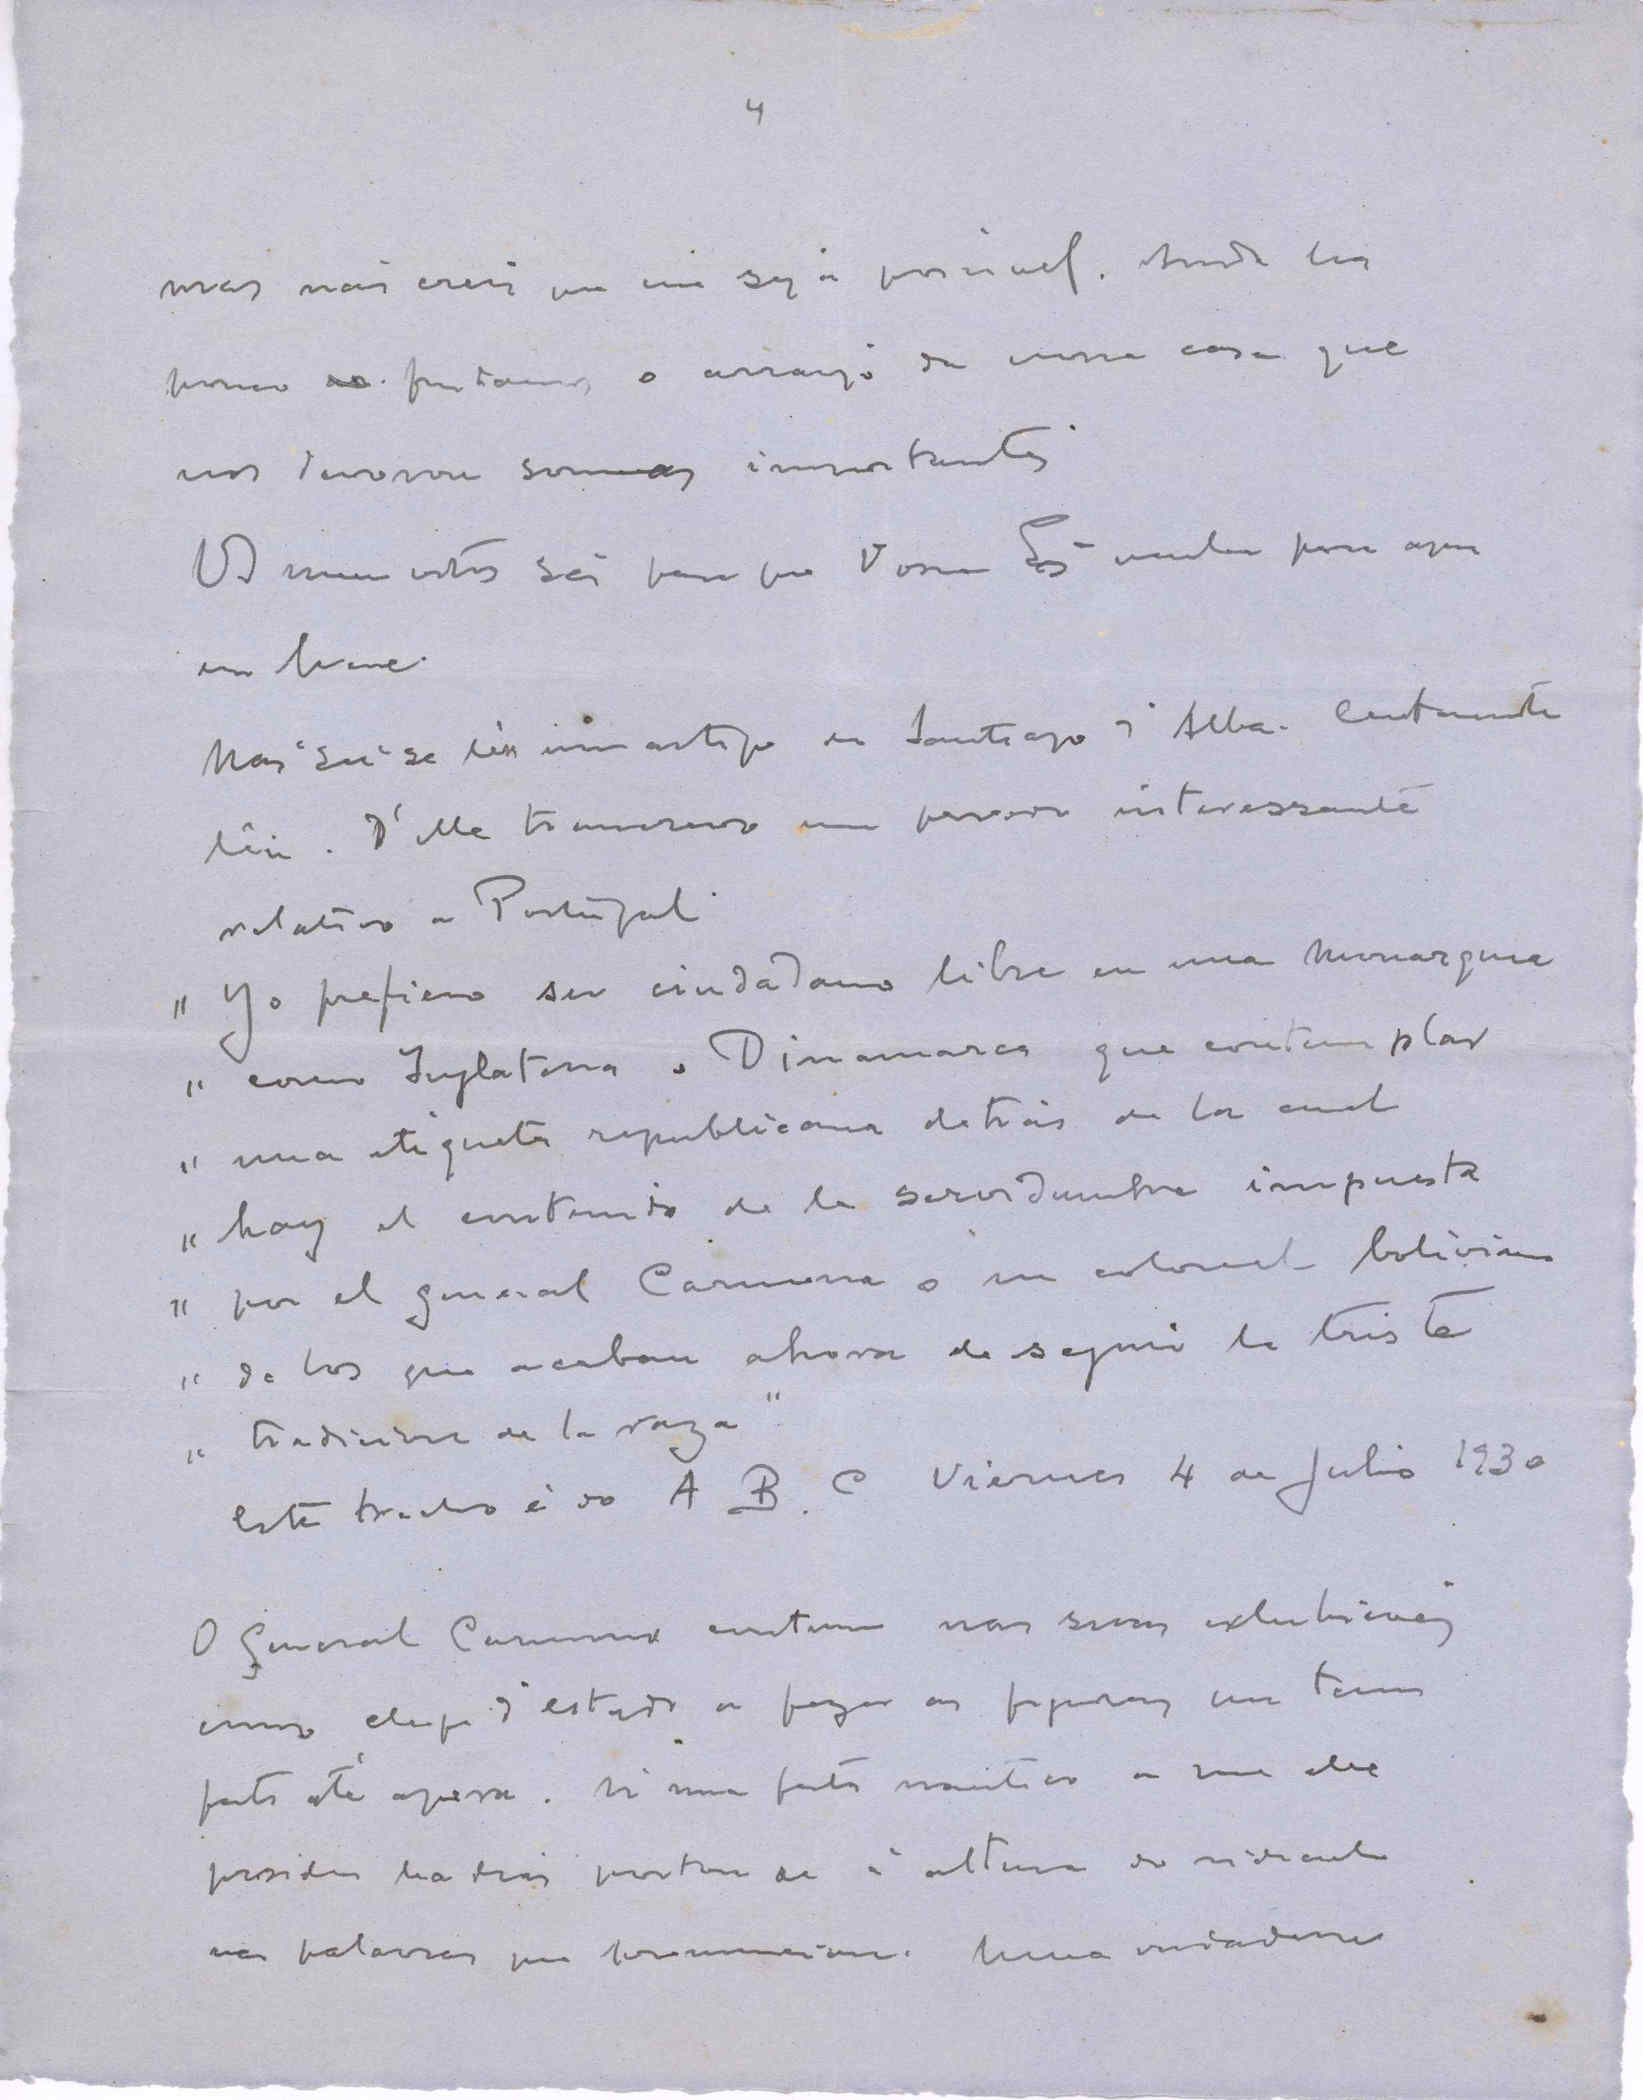 4
mas não creio que me seja possivel. Ainda ha
pouco pintamos o arranjo da nossa casa que
nos devorou sommas importantes
Os meus votos são para que Vossa Exª venha para
em breve.
Não sei se lêu um artigo de Santiago d'Alba. Certamente
lêu. D'elle transcrevo um periodo interessante
relativo a Portugal
" Yo prefiero ser ciudadano libre en una Monarquia
" como Inglaterra o Dinamarca que contemplar
" una etiqueta republicana detrás de la cual
" hay el contenido de la servidumbre impuesta
" por el general Carmona o un coronel boliviano
" de los que acaban ahora de seguir la triste
" tradicion de la raza"
Este trecho é do A B. C Viernes 4 de Julio 1930
O General Carmona continua nas suas exhibições
como chefe d'estado a fazer as figuras que tem
feito até agora. N'uma festa nautica a que elle
presidiu ha dias portou se á altura do ridiculo
nas palavras que pronunciou. Uma verdadeira